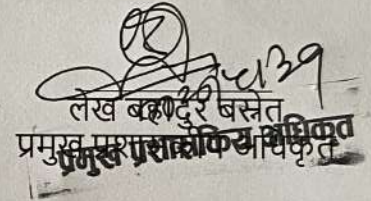 लेख बहादुर बस्नेत
प्रमुख प्रशासकीय अधिकृत
प्रमुख प्रशासकिय अधिकृत